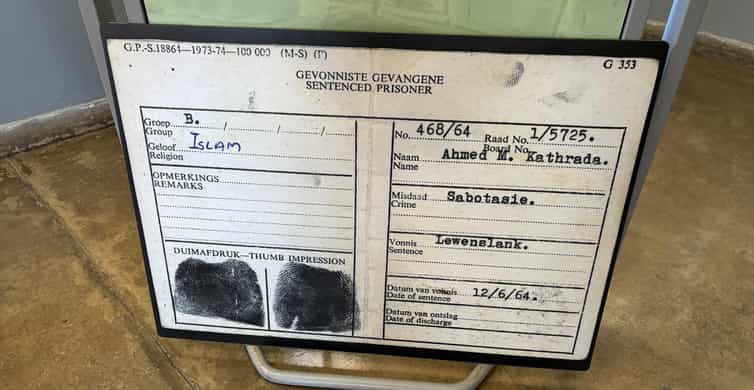 G.P.-S.18864—1973-74—100 000 (M-S) (F)
G 353
GEVONNISTE GEVANGENE
SENTENCED PRISONER
Groep B. / / / /
Group
Geloof ISLAM
Religion
OPMERKINGS
REMARKS
DUIMAFDRUK—THUMB IMPRESSION
No. 468/64 Raad No. 1/5725.
Board No.
Naam Ahmed M. Kathrada.
Name
Misdaad Sabotasie.
Crime
Vonnis Lewenslank.
Sentence
Datum van vonnis 12/6/64.
Date of sentence
Datum van ontslag
Date of discharge